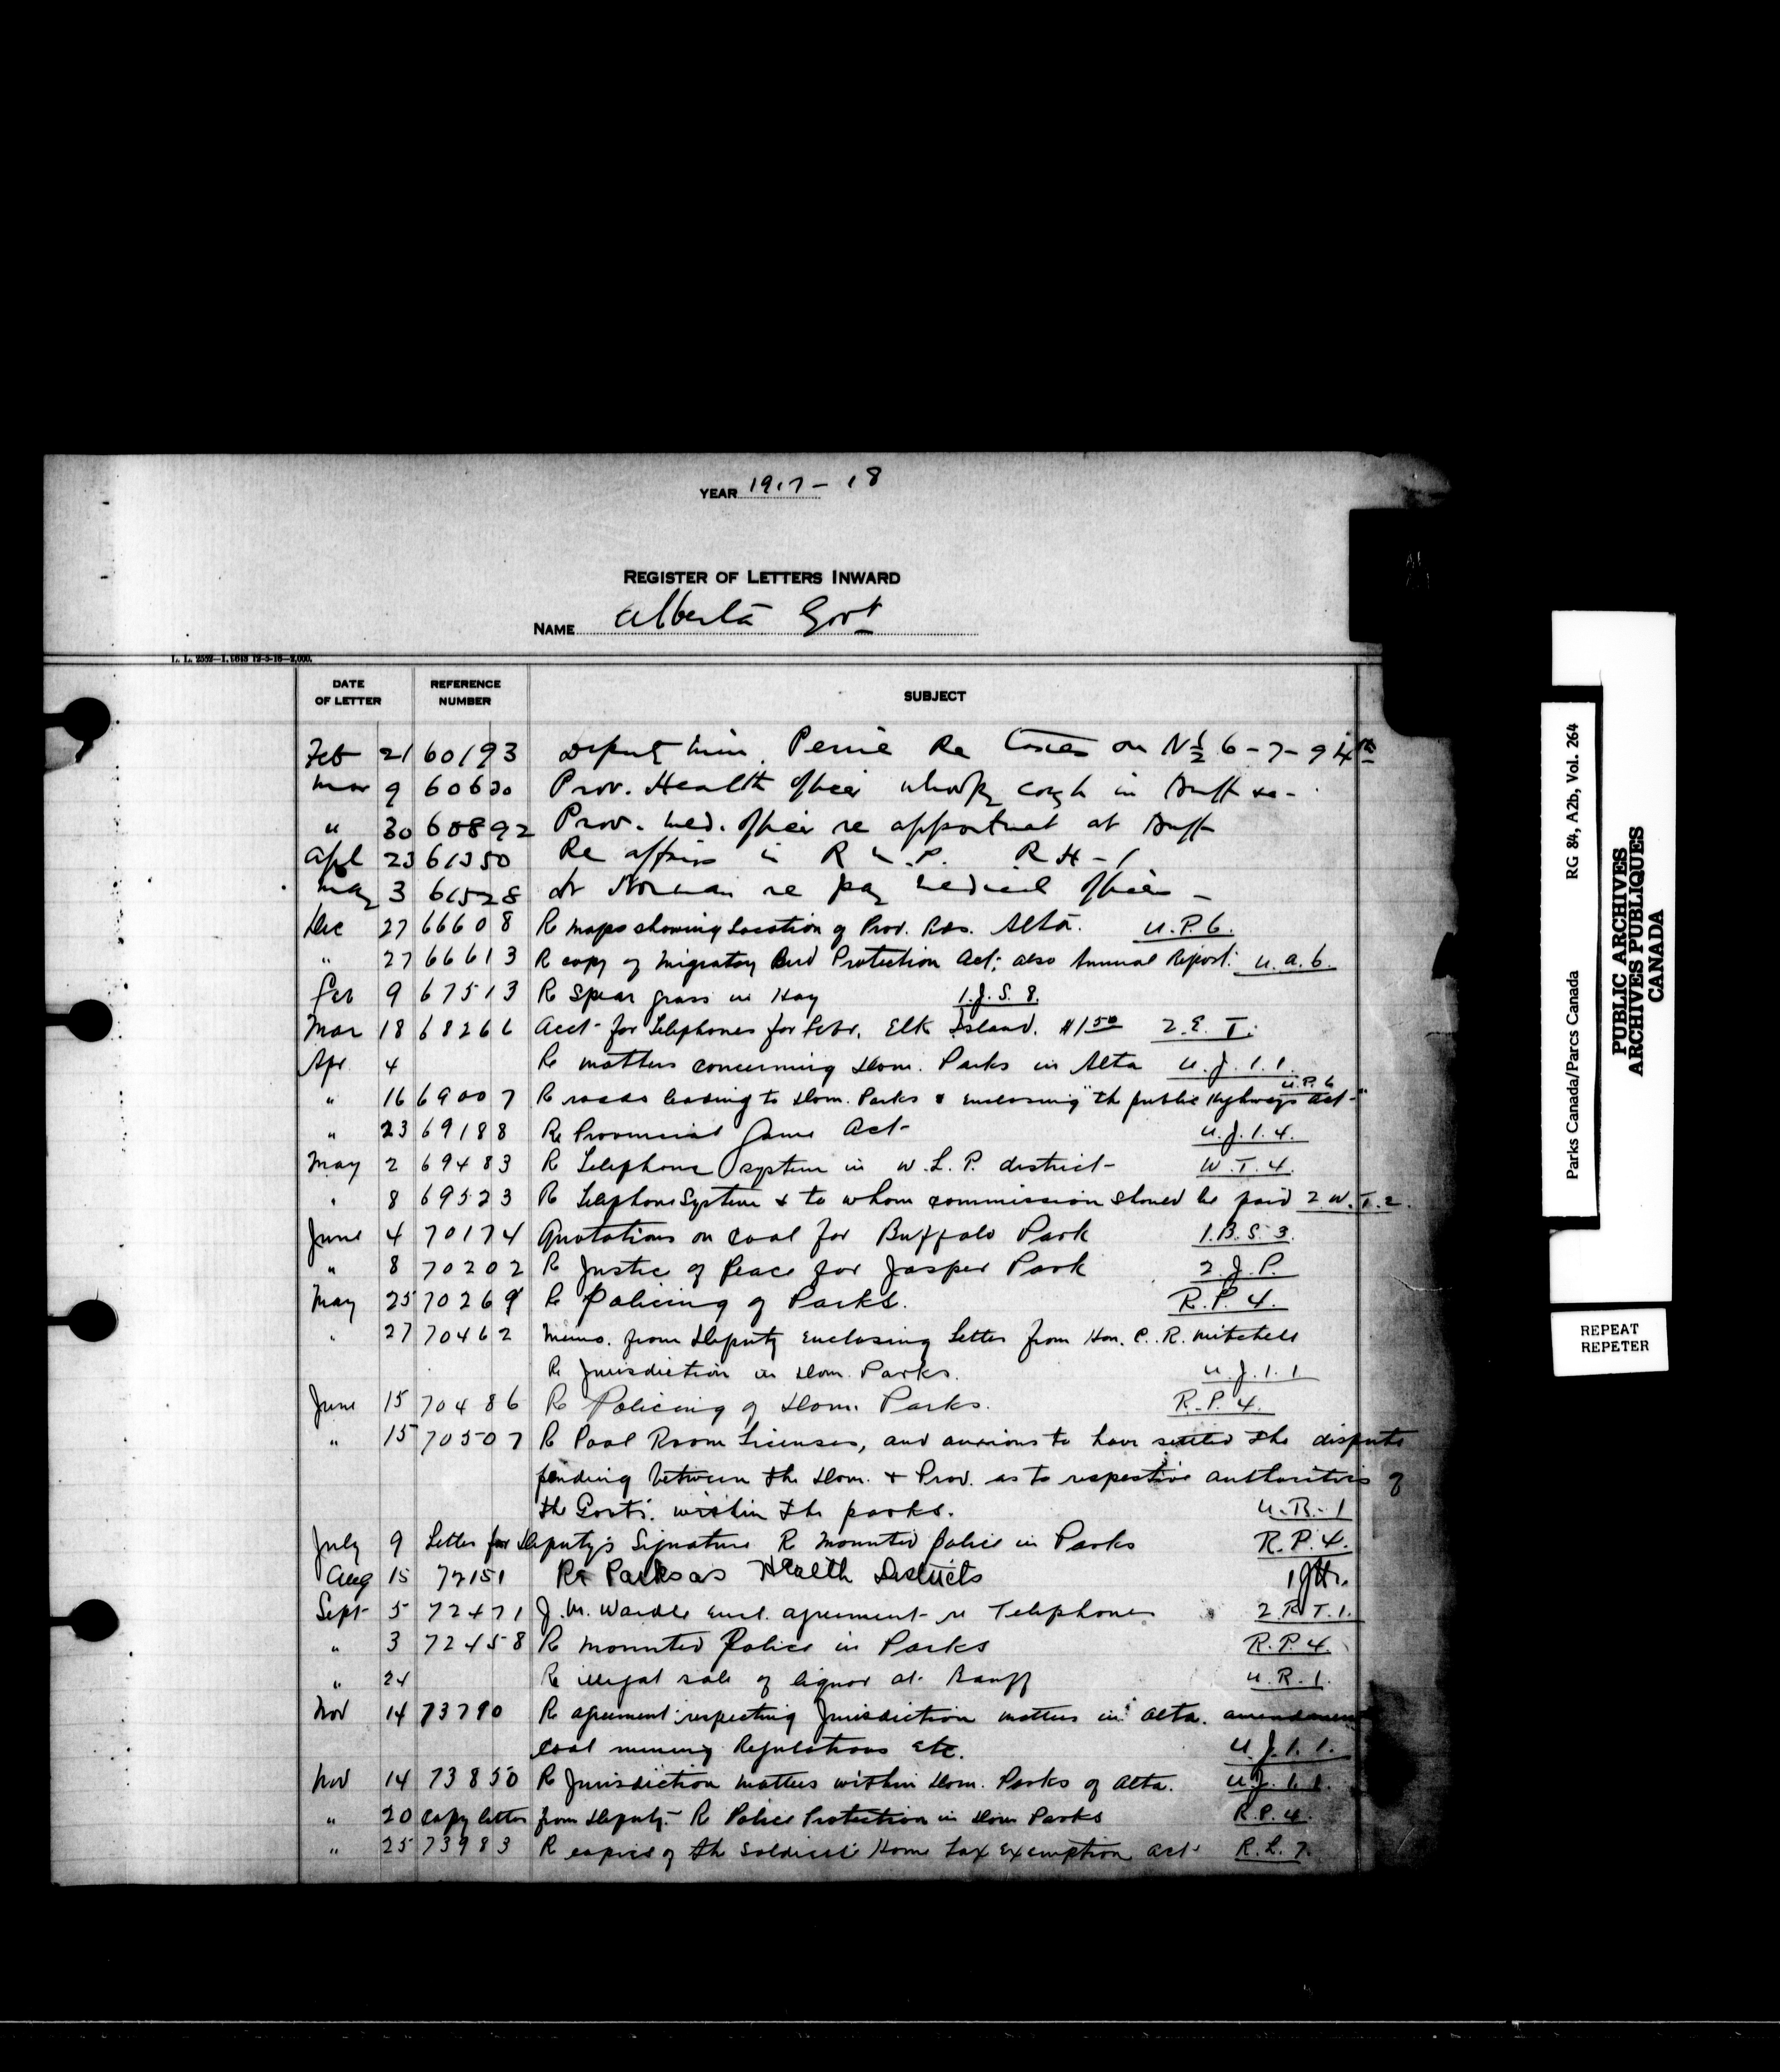 YEAR 1917 - 18
REGISTER OF LETTERS INWARD
NAME Alberta Govt
L. L. 2552—1, 12-5-16—2,000.
DATE OF LETTER REFERENCE NUMBER SUBJECT
Feb 21 60193 Deput Min. Re on N½ 6-7-9 4th
Mar 9 60630 Prov. Health Officer cough in
" 30 60892 Prov. Med. Officer re at
Apl 23 61350 Re affairs in R. H-1
May 3 61528 Dr Norman re pay medical officer -
Dec 27 66608 Re maps showing Location of Prov. Rds. Alta. U.P.6.
" 27 66613 Re copy of Migratory Bird Protection Act; also Annual Report. U.A.6.
Feb 9 67513 Re Spear grass in Hay 1.J.S.8.
Mar 18 68266 Acct- for Telephones for Febr. Elk Island. $1 50 2.E.T.
Apr. 4 Re matters concerning Dom. Parks in Alta U.J.1.1.
" 16 69007 Re roads leading to Dom. Parks & enclosing "the public Highways Act-" U.P.6
" 23 69188 Re Provincial Game Act- U.J.1.4.
May 2 69483 Re Telephone system in W.L.P. district- W.T.4.
" 8 69523 Re Telephone System & to whom commission should be paid 2.W.T.2.
June 4 70174 Quotations on coal for Buffalo Park 1.B.S.3.
" 8 70202 Re Justice of Peace for Jasper Park 2.J.P.
May 25 70269 Re Policing of Parks. R.P.4.
" 27 70462 Memo. from Deputy enclosing letter from Hon. C. R. Mitchell
Re Jurisdiction in Dom. Parks. U.J.1.1
June 15 70486 Re Policing of Dom. Parks. R.P.4.
" 15 70507 Re Pool Room Licenses, and anxious to have settled the dispute
pending between the Dom. & Prov. as to respective authorities of
the Govts. within the parks. U.B.-1
July 9 Letter for Deputy's Signature Re Mounted Police in Parks R.P.4.
Aug 15 72151 Re Parks as Health Districts
Sept- 5 72471 J.M. Wardle encl. agreement- re Telephones 2.R.T.1.
" 3 72458 Re Mounted Police in Parks R.P.4.
" 24 Re illegal sale of liquor at- Banff U.R.1.
Nov 14 73790 Re agreement respecting Jurisdiction matters in Alta. amendment
coal mining Regulations etc. U.J.1.1.
Nov 14 73850 Re Jurisdiction matters within Dom. Parks of Alta. U.J.1.1.
" 20 Copy letter from Deputy- Re Police Protection in Dom Parks R.P.4.
" 25 73983 Re copies of the Soldiers' Home Tax Exemption Act- R.L.7.
Parks Canada/Parcs Canada RG 84, A2b, Vol. 264
PUBLIC ARCHIVES
ARCHIVES PUBLIQUES
CANADA
REPEAT
REPETER